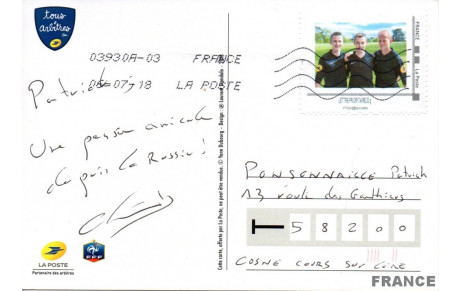 tous
arbitres
03930A-03 FRANCE
06-07-18 LA POSTE
Patrick
Une pensée amicale
depuis la Russie !
LA POSTE
Partenaire des arbitres
FFF
Cette carte, offerte par La Poste, ne peut être vendue.
FRANCE
La Poste
LETTRE PRIORITAIRE 20 g
PONSONNAILLE Patrick
13 route des Gauthiers
58200
COSNE COURS SUR LOIRE
FRANCE